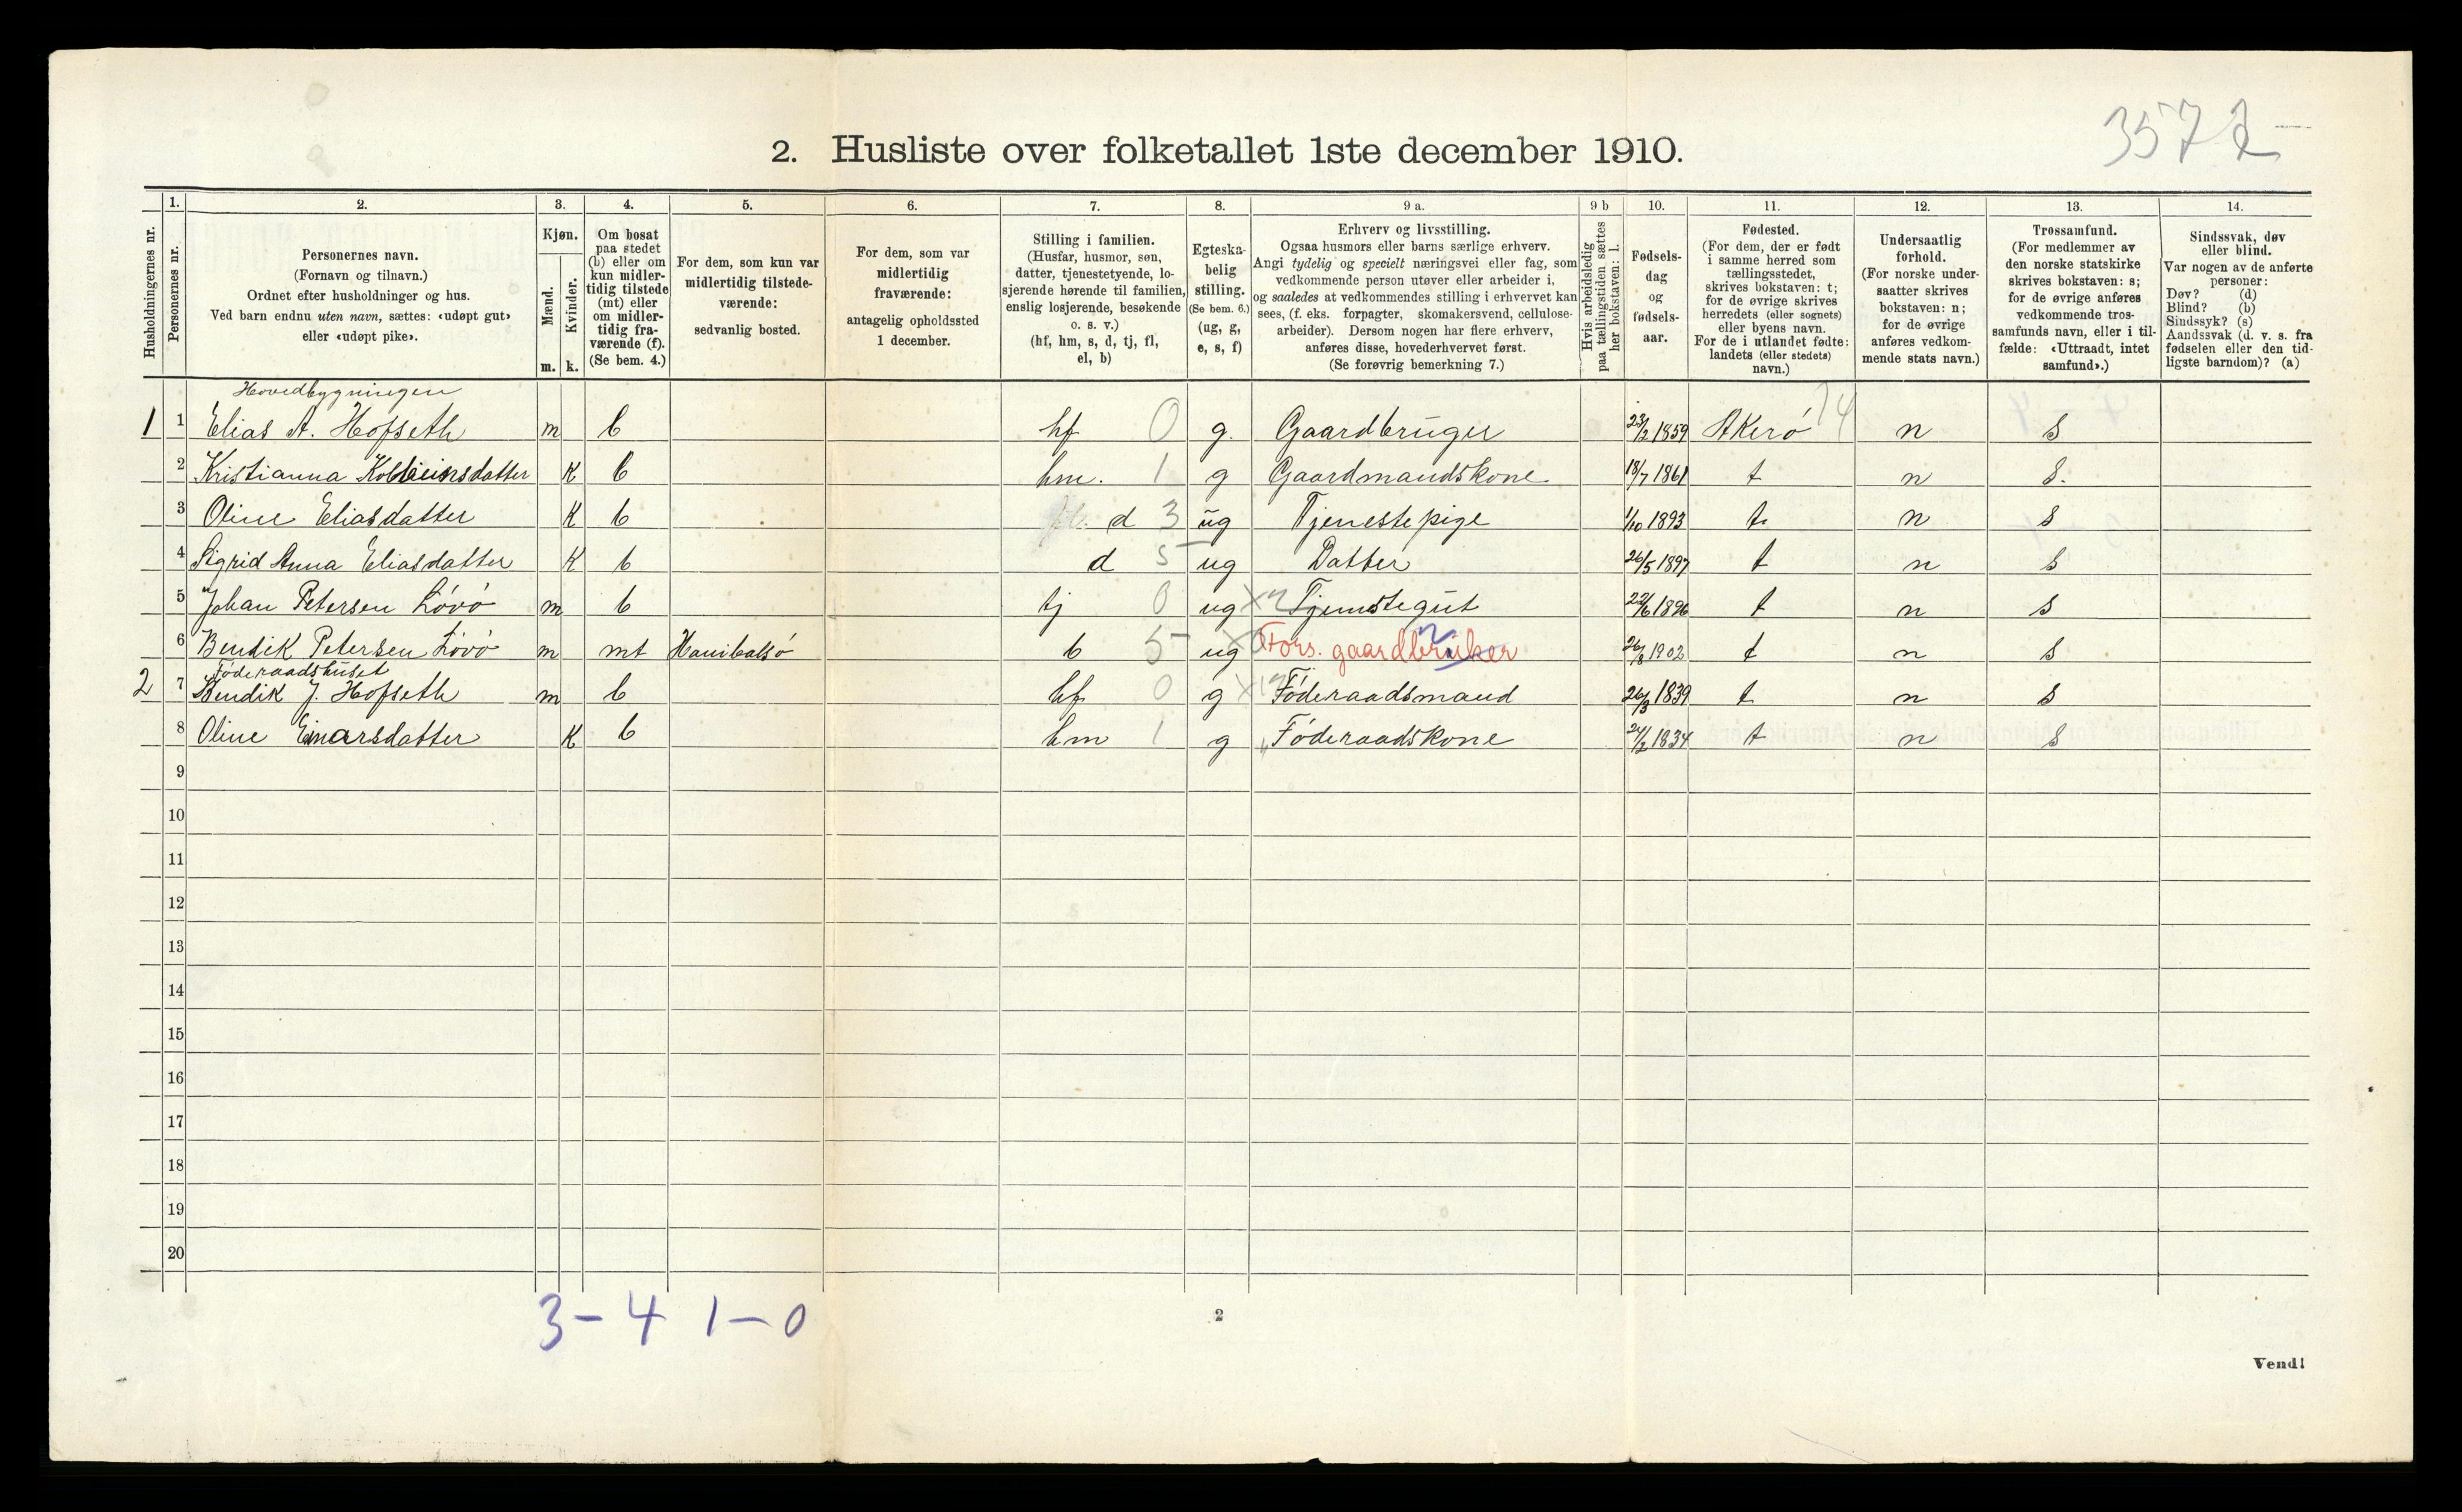 3572
2. Husliste over folketallet 1ste december 1910.
Husholdningernes nr.
1. Personernes nr.
2. Personernes navn. (Fornavn og tilnavn.) Ordnet efter husholdninger og hus. Ved barn endnu uten navn, sættes: «udøpt gut» eller «udøpt pike».
3. Kjøn. Mænd. m. Kvinder. k.
4. Om bosat paa stedet (b) eller om kun midler-tidig tilstede (mt) eller om midler-tidig fra-værende (f). (Se bem. 4.)
5. For dem, som kun var midlertidig tilstede-værende: sedvanlig bosted.
6. For dem, som var midlertidig fraværende: antagelig opholdssted 1 december.
7. Stilling i familien. (Husfar, husmor, søn, datter, tjenestetyende, lo-sjerende hørende til familien, enslig losjerende, besøkende o. s. v.) (hf, hm, s, d, tj, fl, el, b)
8. Egteska-belig stilling. (Se bem. 6.) (ug, g, e, s, f)
9 a. Erhverv og livsstilling. Ogsaa husmors eller barns særlige erhverv. Angi tydelig og specielt næringsvei eller fag, som vedkommende person utøver eller arbeider i, og saaledes at vedkommendes stilling i erhvervet kan sees, (f. eks. forpagter, skomakersvend, cellulose-arbeider). Dersom nogen har flere erhverv, anføres disse, hovederhvervet først. (Se forøvrig bemerkning 7.)
9 b Hvis arbeidsledig paa tællingstiden sættes her bokstaven: l.
10. Fødsels-dag og fødsels-aar.
11. Fødested. (For dem, der er født i samme herred som tællingsstedet, skrives bokstaven: t; for de øvrige skrives herredets (eller sognets) eller byens navn. For de i utlandet fødte: landets (eller stedets) navn.)
12. Undersaatlig forhold. (For norske under-saatter skrives bokstaven: n; for de øvrige anføres vedkom-mende stats navn.)
13. Trossamfund. (For medlemmer av den norske statskirke skrives bokstaven: s; for de øvrige anføres vedkommende tros-samfunds navn, eller i til-fælde: «Uttraadt, intet samfund».)
14. Sindssvak, døv eller blind. Var nogen av de anførte personer: Døv? (d) Blind? (b) Sindssyk? (s) Aandssvak (d. v. s. fra fødselen eller den tid-ligste barndom)? (a)
Hovedbygningen
1 1 Elias A. Hofseth m b hf 0 g. Gaardbruger 23/2 1859 Akerö 14 n s
2 Kristianna Kolbeinsdatter K b hm. 1 g Gaardmandskone 18/7 1861 t n s.
3 Oline Eliasdatter K b d 3 ug Tjenestepige 1/10 1893 t n s
4 Sigrid Anna Eliasdatter K b d 5 ug Datter 26/5 1897 t n s
5 Johan Petersen Lövö m b tj 0 ug Tjenstegut 22/6 1896 t n s
6 Bendik Petersen Lövö m mt Hanibalsö b 5 ug Fors. gaardbruker 26/8 1902 t n s
Föderaadshuset
2 7 Bendik J. Hofseth m b hf 0 g Föderaadsmand 26/3 1839 t n s
8 Oline Einarsdatter K b hm 1 g " Föderaadskone 24/2 1834 t n s
9
10
11
12
13
14
15
16
17
18
19
20
3 - 4 1 - 0
2
Vend!